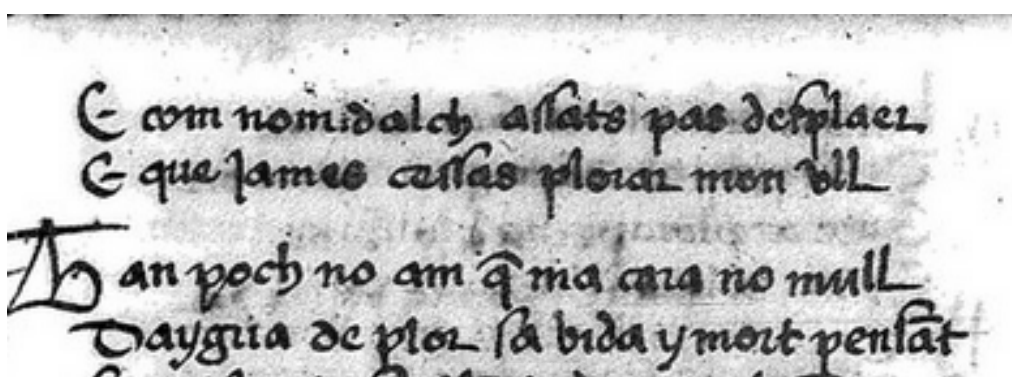 E com nomidalch assats pas desplaer
E que James cessas plorar mon vll
Tan poch no am q̃ ma cara no mull
Daygua de plor sa vida y mort pensãt